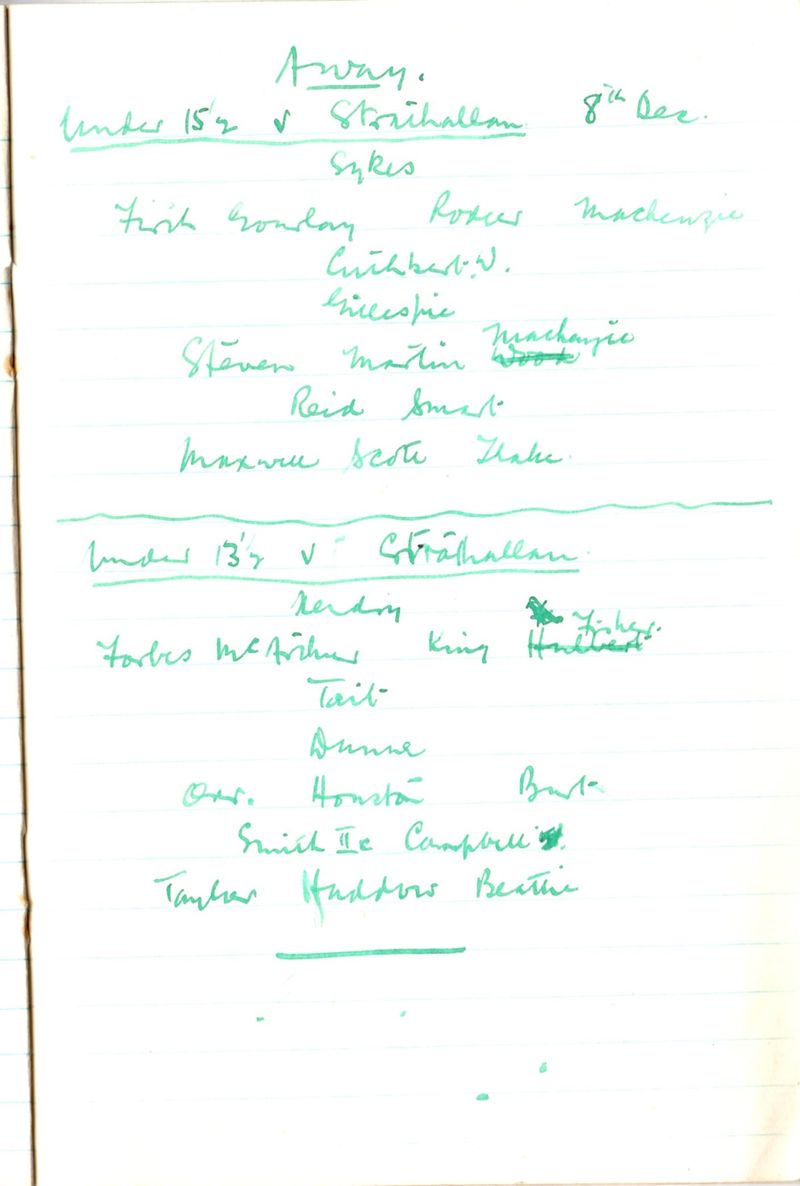 Away.
Under 15's v Strathallan 8th Dec.
Sykes
Firth Gourlay Rodger Mackenzie
Cuthbert. W.
Gillespie
Steven Martin Mackenzie
Reid Smart
Maxwell Scott
Under 13's v Strathallan
Fisher.
Forbes McArthur King Hulbert
Tait
Dunne
Orr. Houston Burt
Smith IIc Campbell
Haddow Beattie